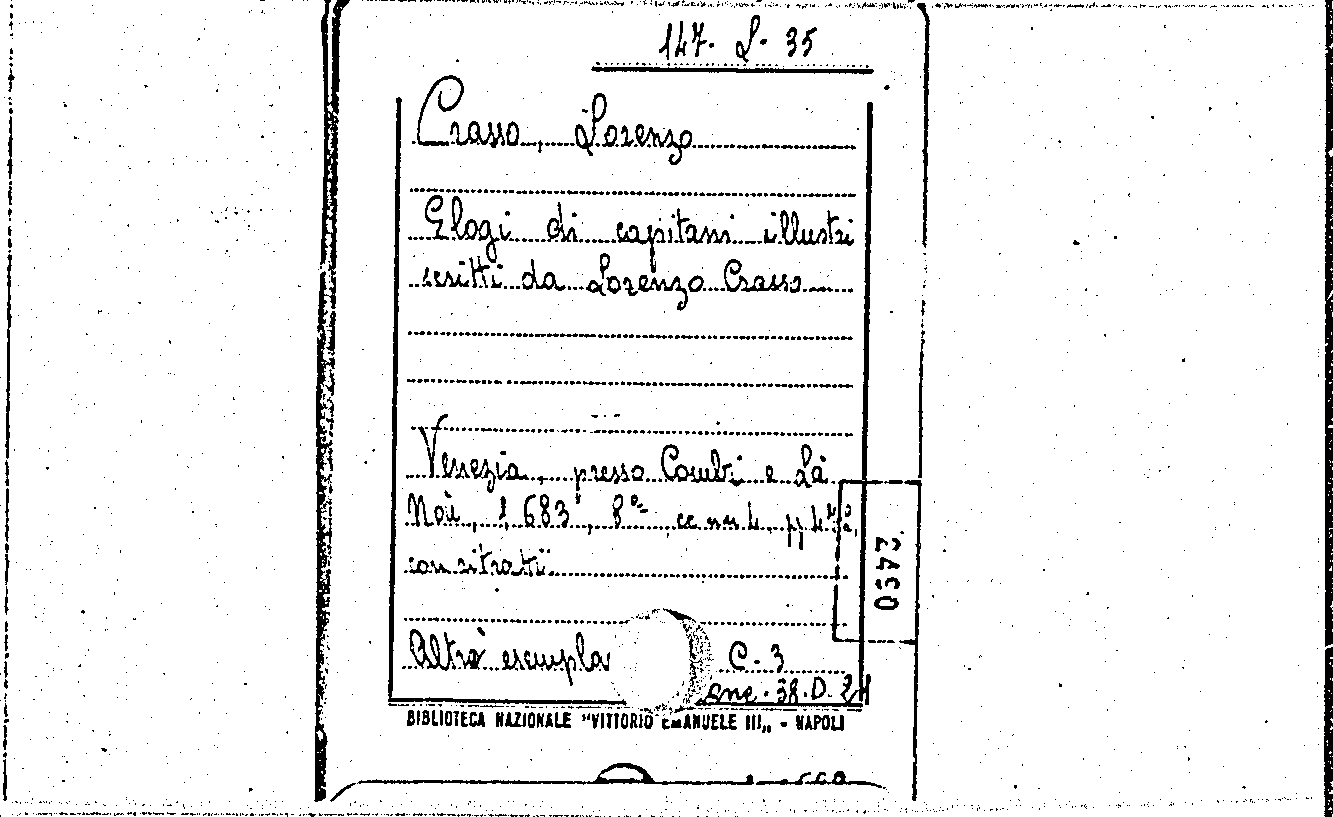 147. L. 35
Crasso, Lorenzo
Elogi di capitani illustri
scritti da Lorenzo Crasso
Venezia, presso Combi e La
Noù, 1683, 8º, cc nn 4, pp
con ritratti
2490
Altro esempla
C. 3
38. D. 21
BIBLIOTECA NAZIONALE "VITTORIO EMANUELE III„ - NAPOLI